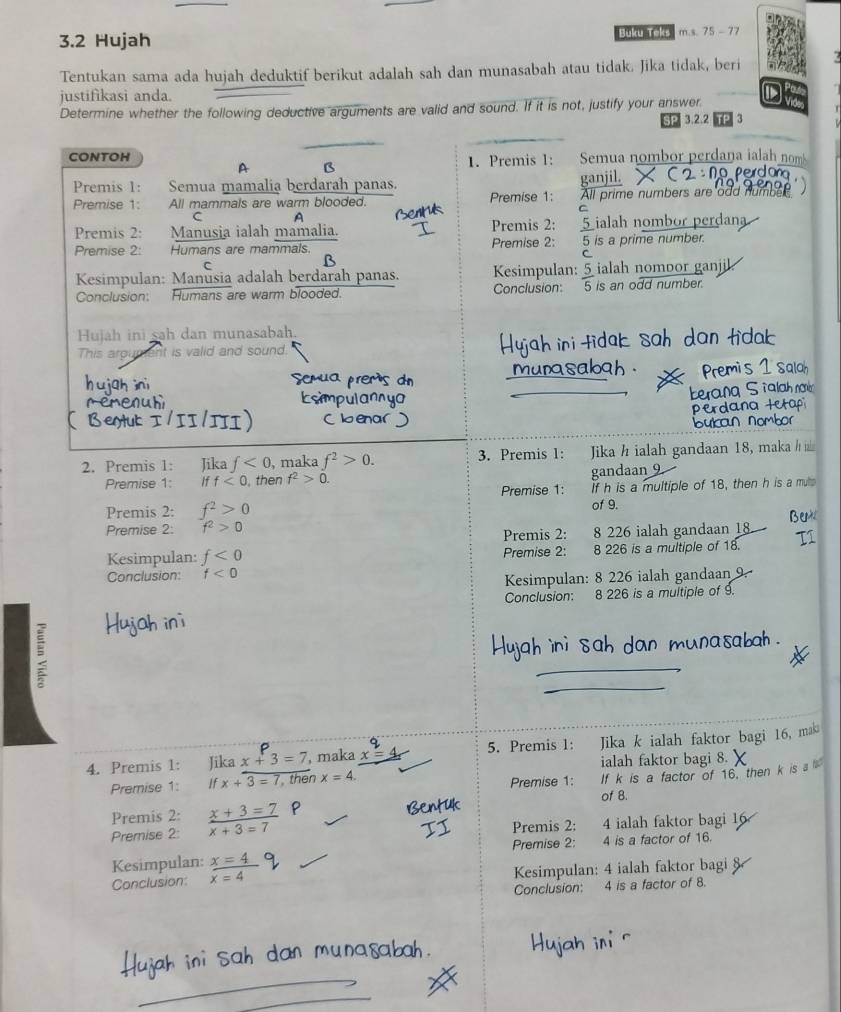 3.2 Hujah
Buku Teks m.s. 75 – 77
Tentukan sama ada hujah deduktif berikut adalah sah dan munasabah atau tidak. Jika tidak, beri
justifikasi anda.
Determine whether the following deductive arguments are valid and sound. If it is not, justify your answer.
SP 3.2.2 TP 3
Video
CONTOH
A B
Premis 1: Semua mamalia berdarah panas.
Premise 1: All mammals are warm blooded.
C A
Premis 2: Manusia ialah mamalia.
Premise 2: Humans are mammals.
C B
Kesimpulan: Manusia adalah berdarah panas.
Conclusion: Humans are warm blooded.
Hujah ini sah dan munasabah.
This argument is valid and sound.
hujah ini
memenuhi
(Bentuk I/II/III)
semua premis dn
ksimpulannya
(benar)
1. Premis 1: Semua nombor perdana ialah nom
ganjil. X (2: no perdana,
no genap)
Premise 1: All prime numbers are odd number
Bentuk
I
C
Premis 2: 5 ialah nombor perdana
Premise 2: 5 is a prime number.
C
Kesimpulan: 5 ialah nombor ganjil.
Conclusion: 5 is an odd number.
Hujah ini tidak sah dan tidak
munasabah.
Premis 1 salah
perdana tetapi
bukan nombor
2. Premis 1: Jika f < 0, maka f² > 0.
Premise 1: If f < 0, then f² > 0.
Premis 2: f² > 0
Premise 2: f² > 0
Kesimpulan: f < 0
Conclusion: f < 0
Hujah ini
3. Premis 1: Jika h ialah gandaan 18, maka h
gandaan 9
Premise 1: If h is a multiple of 18, then h is a
of 9.
II
Premis 2: 8 226 ialah gandaan 18
Premise 2: 8 226 is a multiple of 18.
Kesimpulan: 8 226 ialah gandaan 9.
Conclusion: 8 226 is a multiple of 9.
Hujah ini sah dan munasabah.
Pautan Video
P q
4. Premis 1: Jika x + 3 = 7, maka x = 4
Premise 1: If x + 3 = 7, then x = 4.
Premis 2: x + 3 = 7 P
Premise 2: x + 3 = 7
Bentuk
II
Kesimpulan: x = 4 q
Conclusion: x = 4
Hujah ini sah dan munasabah.
5. Premis 1: Jika k ialah faktor bagi 16, mak
ialah faktor bagi 8. X
Premise 1: If k is a factor of 16, then k is a
of 8.
Premis 2: 4 ialah faktor bagi 16
Premise 2: 4 is a factor of 16.
Kesimpulan: 4 ialah faktor bagi 8.
Conclusion: 4 is a factor of 8.
Hujah ini